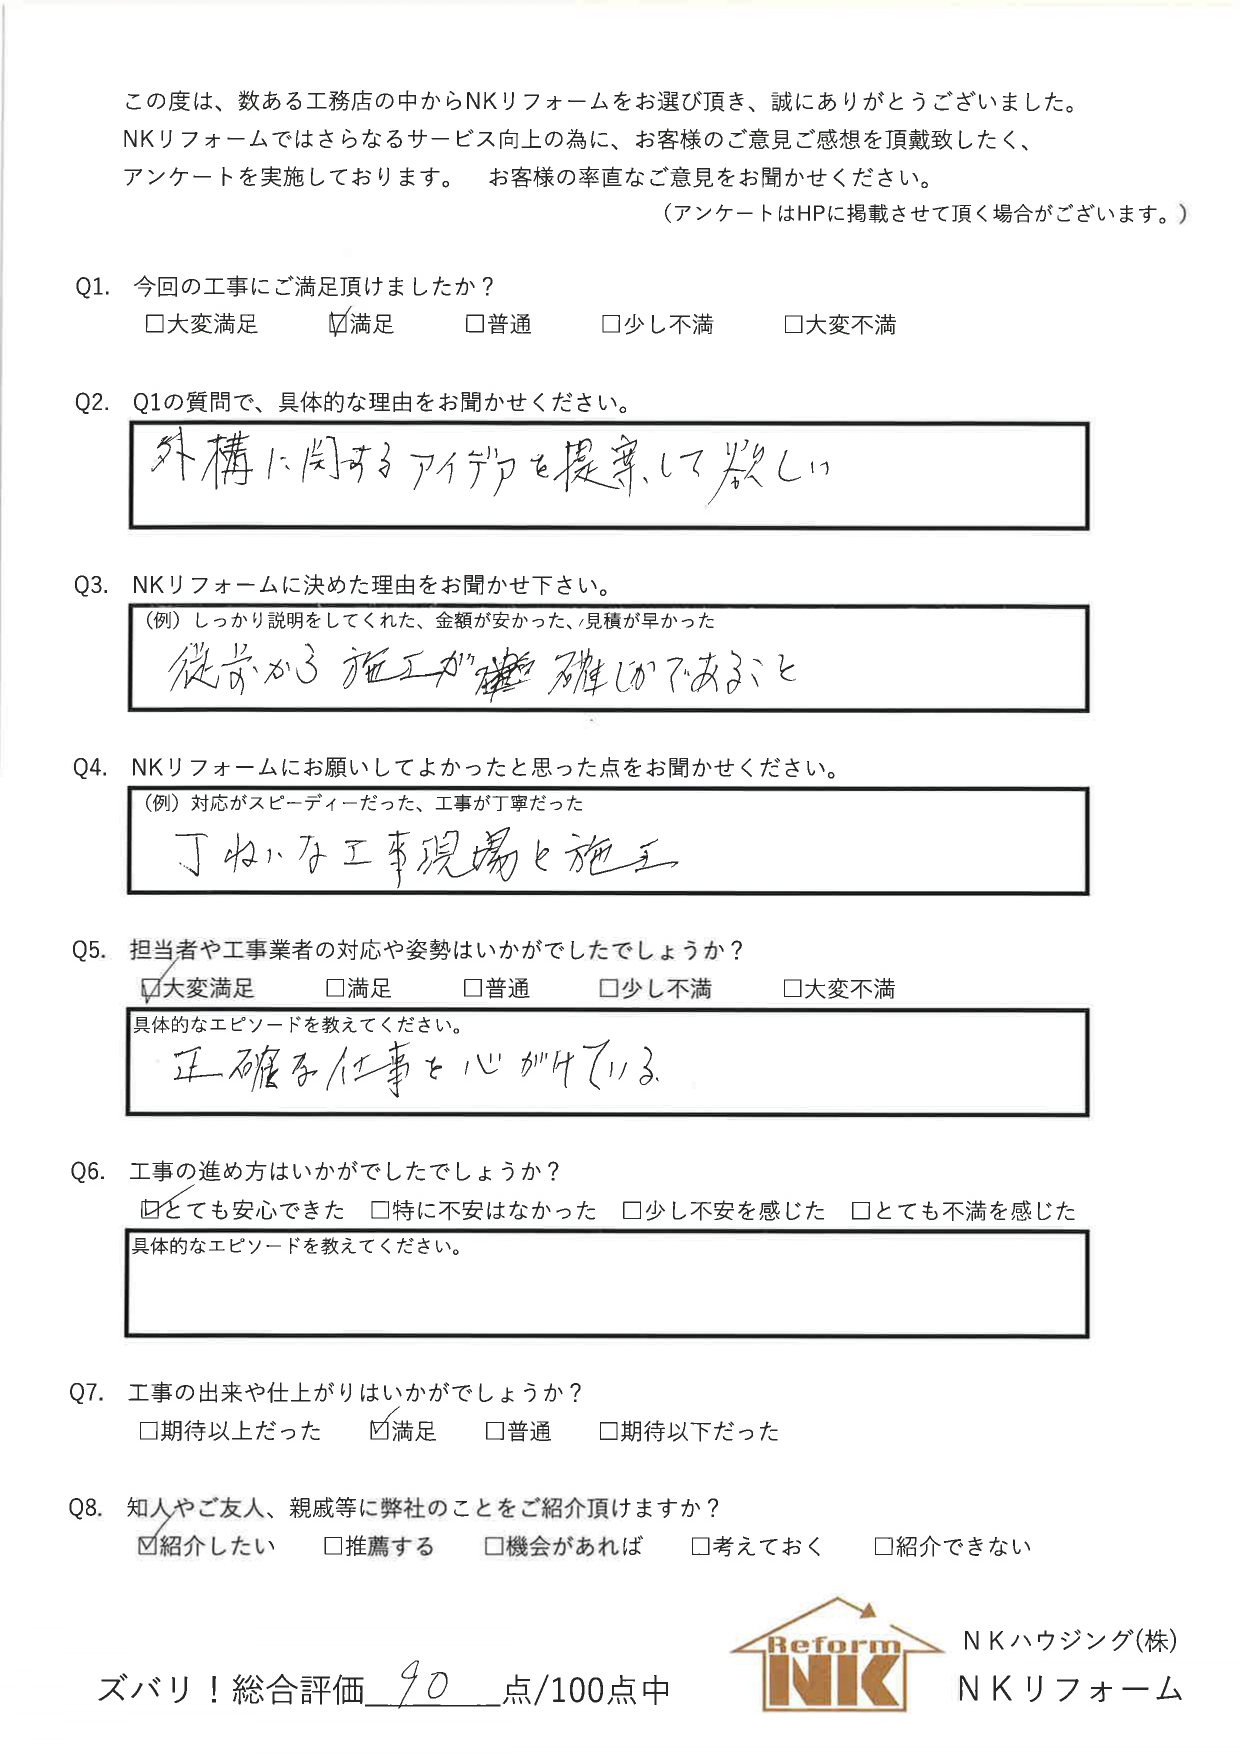 この度は、数ある工務店の中からNKリフォームをお選び頂き、誠にありがとうございました。
NKリフォームではさらなるサービス向上の為に、お客様のご意見ご感想を頂戴致したく、
アンケートを実施しております。　お客様の率直なご意見をお聞かせください。
（アンケートはHPに掲載させて頂く場合がございます。）
Q1. 今回の工事にご満足頂けましたか？
□大変満足 ☑満足 □普通 □少し不満 □大変不満
Q2. Q1の質問で、具体的な理由をお聞かせください。
外構に関するアイデアを提案して欲しい
Q3. NKリフォームに決めた理由をお聞かせ下さい。
（例）しっかり説明をしてくれた、金額が安かった、見積が早かった
従前から 施工が 確しかであること
Q4. NKリフォームにお願いしてよかったと思った点をお聞かせください。
（例）対応がスピーディーだった、工事が丁寧だった
丁ねいな工事現場と施工
Q5. 担当者や工事業者の対応や姿勢はいかがでしたでしょうか？
☑大変満足 □満足 □普通 □少し不満 □大変不満
具体的なエピソードを教えてください。
正確な仕事を心がけている
Q6. 工事の進め方はいかがでしたでしょうか？
☑とても安心できた □特に不安はなかった □少し不安を感じた □とても不満を感じた
具体的なエピソードを教えてください。
Q7. 工事の出来や仕上がりはいかがでしょうか？
□期待以上だった ☑満足 □普通 □期待以下だった
Q8. 知人やご友人、親戚等に弊社のことをご紹介頂けますか？
☑紹介したい □推薦する □機会があれば □考えておく □紹介できない
Reform
NK
NKハウジング(株)
NKリフォーム
ズバリ！総合評価 90 点/100点中